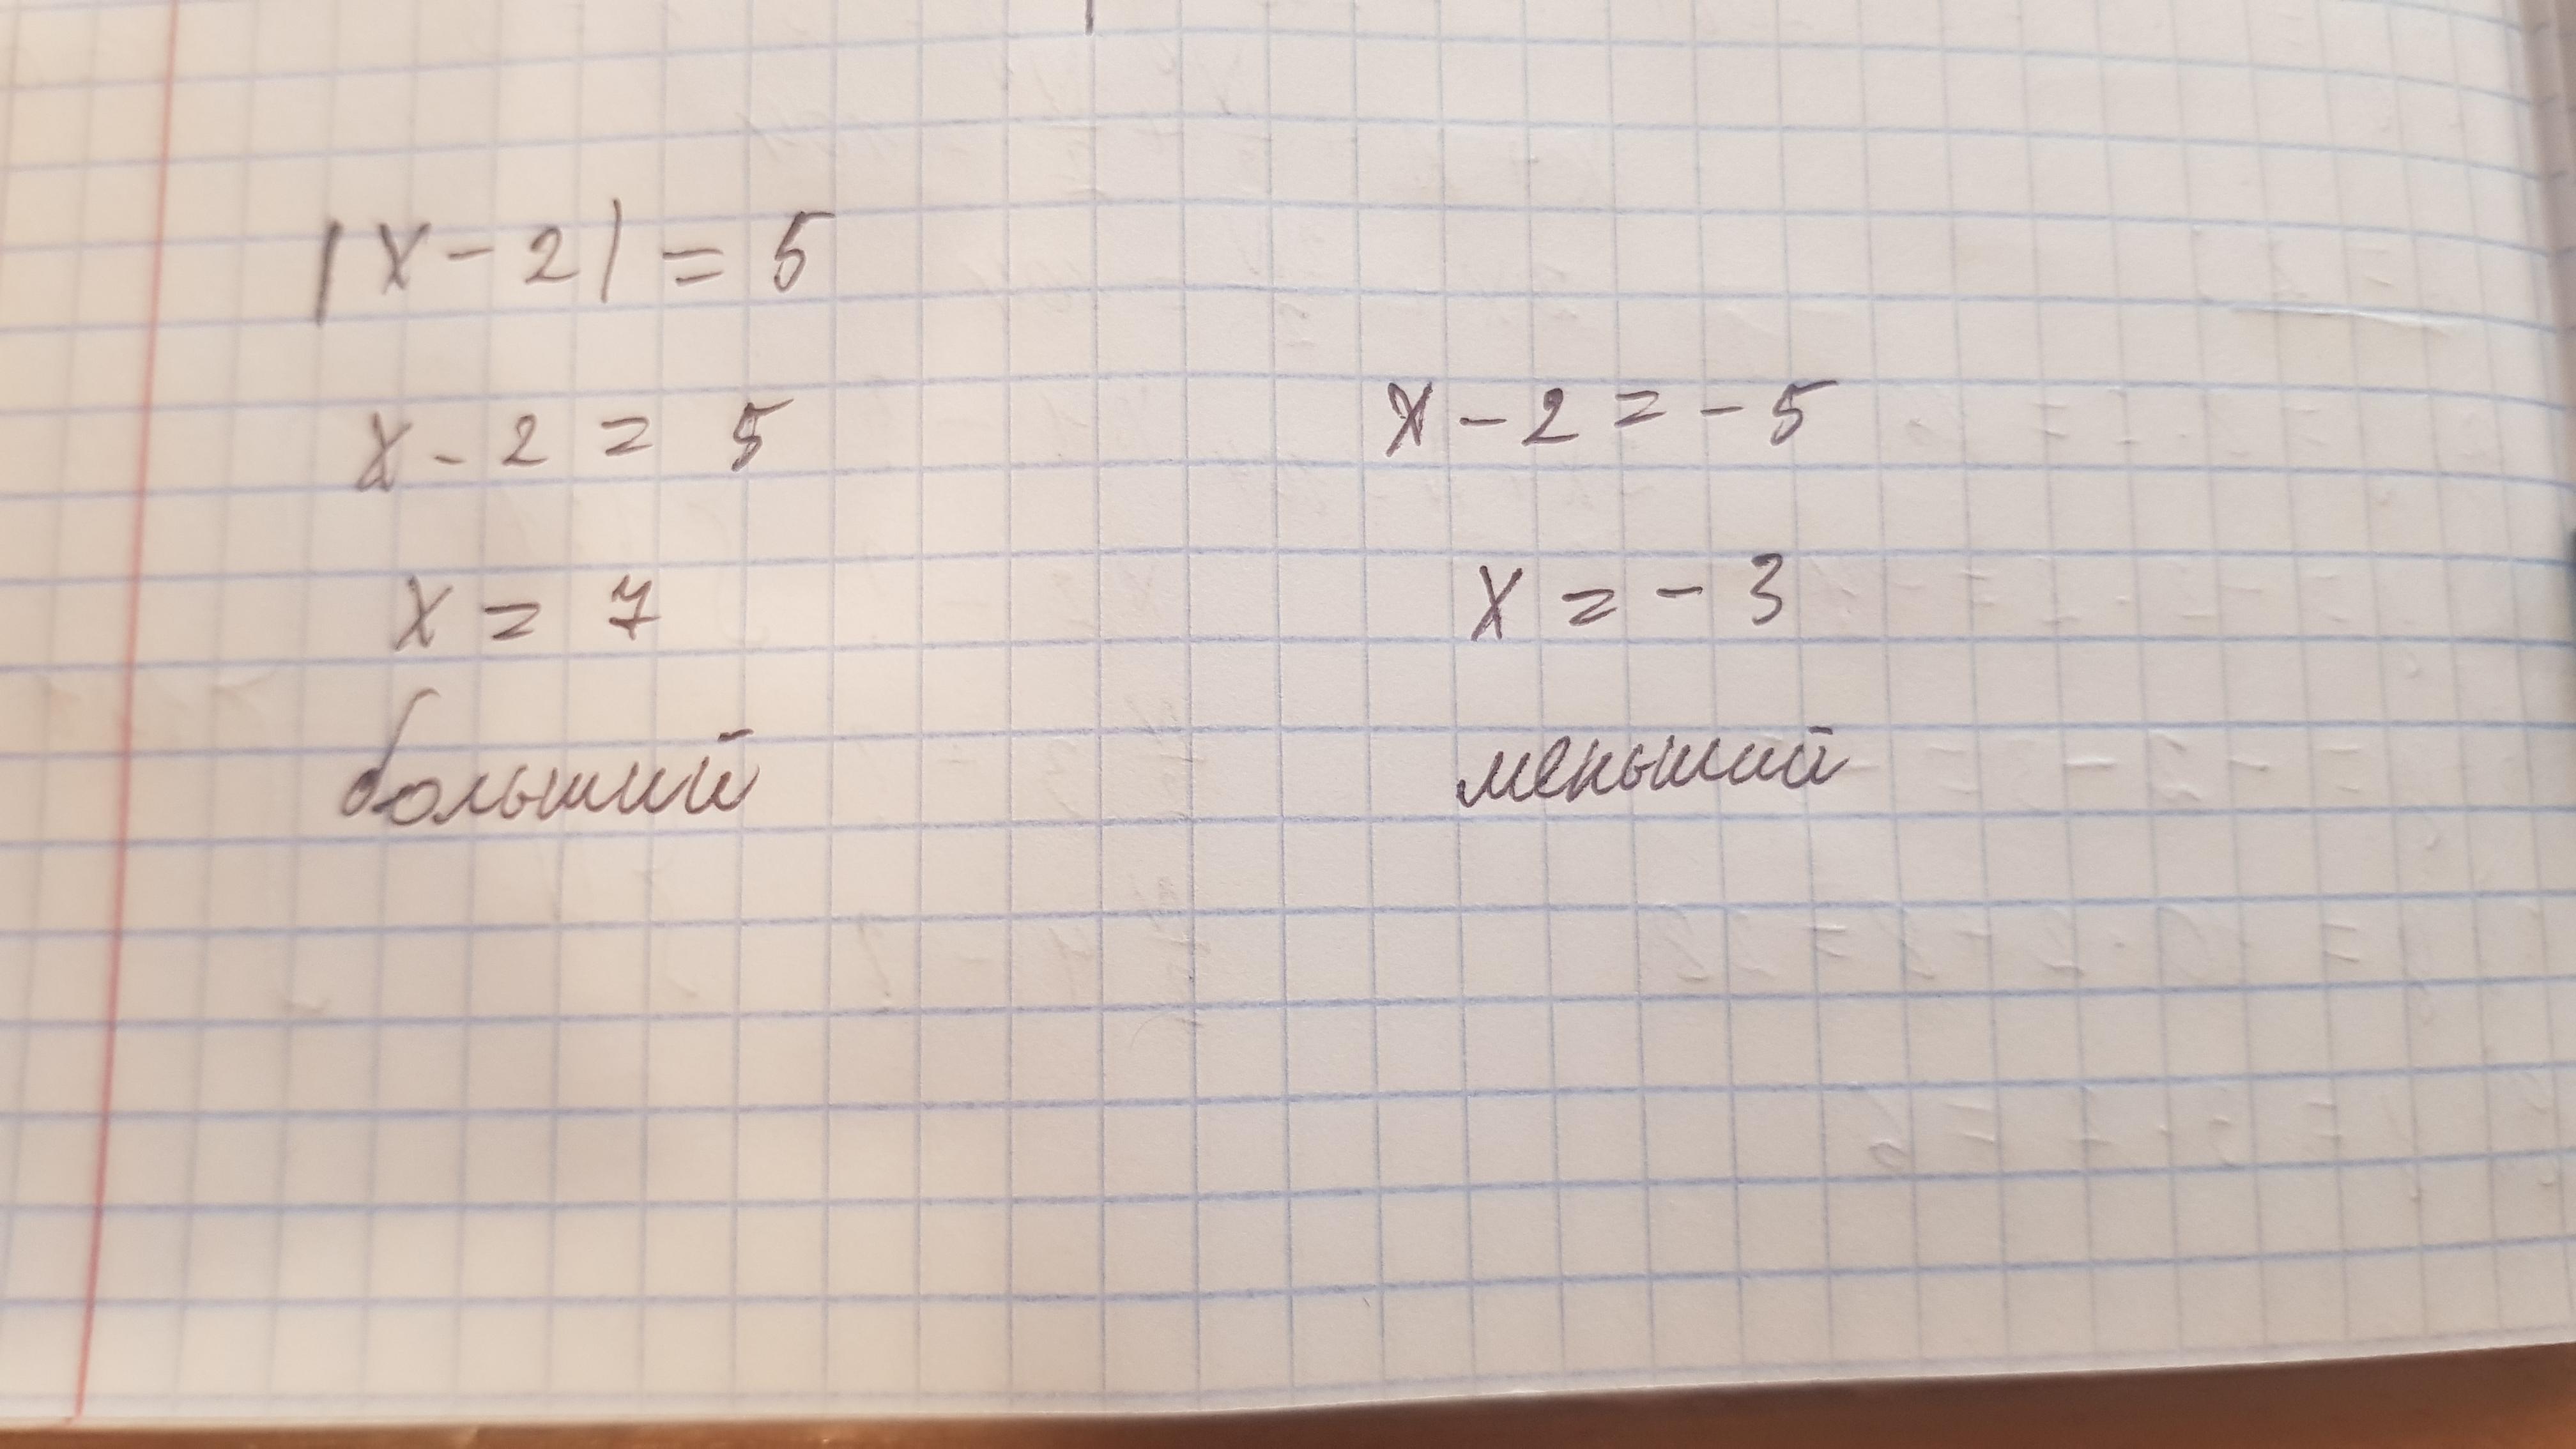 |x - 2| = 5
x - 2 = 5
x = 7
больший
x - 2 = - 5
x = - 3
меньший